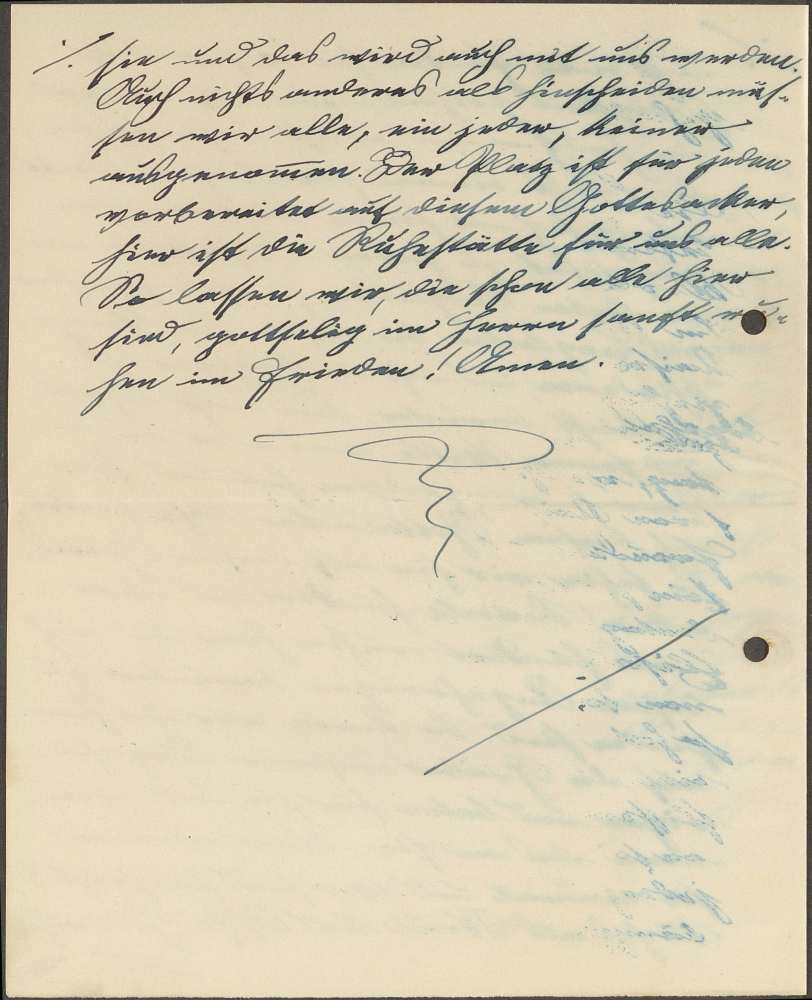 ./. sie und das wird auch mit uns werden.
Auch nichts anderes als hinscheiden müs-
sen wir alle, ein jeder, keiner
ausgenom̅en. Der Platz ist für jeden
vorbereitet auf diesem Gottesacker,
hier ist die Ruhestätte für uns alle.
So lassen wir, die schon alle hier
sind, gottselig im Herrn sanft ru-
hen im Frieden! Amen.